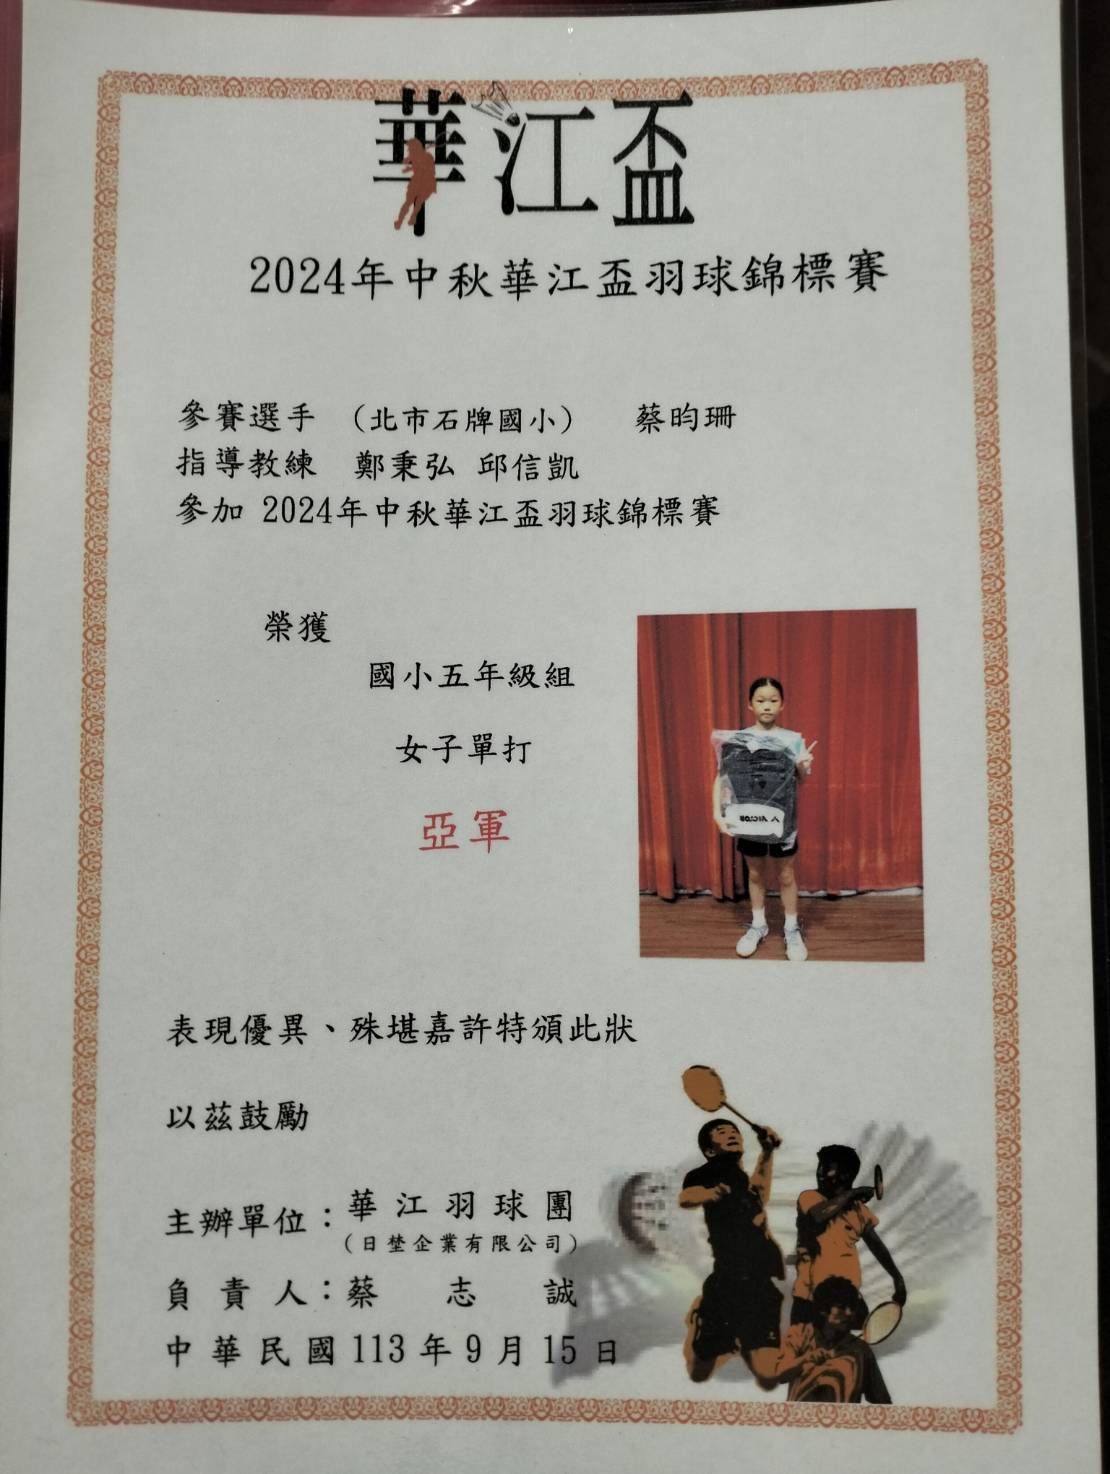 華江盃
2024年中秋華江盃羽球錦標賽
參賽選手 （北市石牌國小） 蔡昀珊
指導教練 鄭秉弘 邱信凱
參加 2024年中秋華江盃羽球錦標賽
榮獲
國小五年級組
女子單打
亞軍
VICTOR
表現優異、殊堪嘉許特頒此狀
以茲鼓勵
主辦單位：華江羽球團
（日埜企業有限公司）
負責人：蔡志誠
中華民國113年9月15日